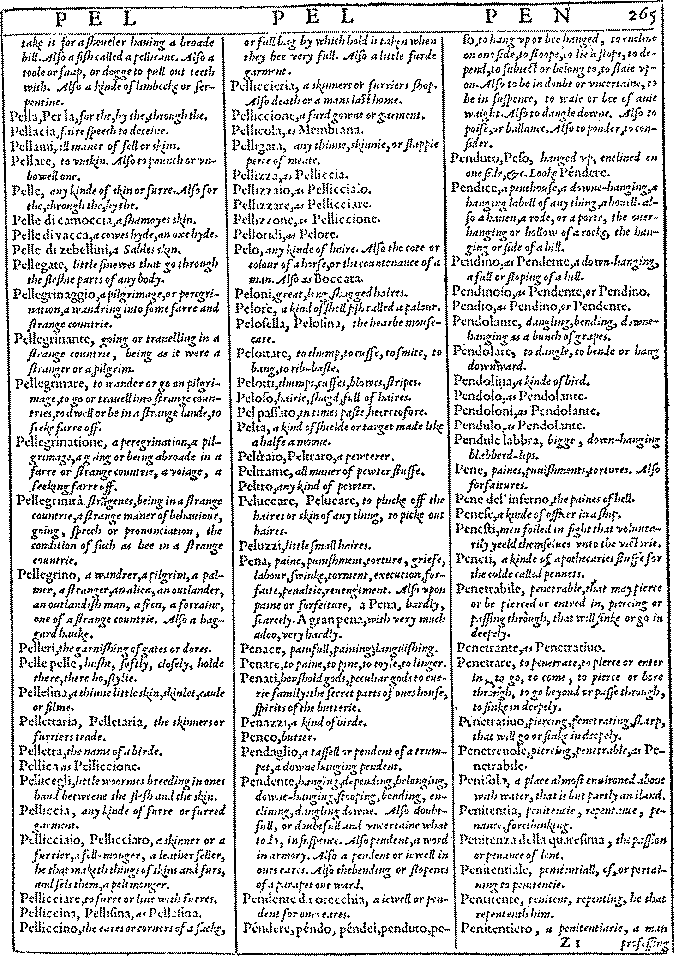 PEL
PEL
PEN
265
take it for a shoueler hauing a broade
bill. Also a fish called a pellicane. Also a
toole or snap, or dogge to pull out teeth
with. Also a kinde of limbecke or ser-
pentine.
Pella, Per la, for the, by the, through the.
Pellacia, faire speech to deceiue.
Pellami, all maner of fell or skins.
Pellare, to vnskin. Also to paunch or vn-
bowell one.
Pelle, any kinde of skin or furre. Also for
the, through the, by the.
Pelle di camoccia, a shamoyes skin.
Pelle di vacca, a cowes hyde, an oxe hyde.
Pelle di zebellini, a Sables skin.
Pellegate, little sinewes that go through
the fleshie parts of any body.
Pellegrinaggio, a pilgrimage, or peregri-
nation, a wandring into some farre and
strange countrie.
Pellegrinante, going or trauelling in a
strange countrie, being as it were a
stranger or a pilgrim.
Pellegrinare, to wander or go on pilgri-
mage, to go or trauell into strange coun-
tries, to dwell or be in a strange lande, to
seeke farre off.
Pellegrinatione, a peregrination, a pil-
grimage, a going or being abroade in a
farre or strange countrie, a voiage, a
seeking farre off.
Pellegrinità, strangenes, being in a strange
countrie, a strange maner of behauiour,
going, speech or pronunciation, the
condition of such as bee in a strange
countrie.
Pellegrino, a wandrer, a pilgrim, a pal-
mer, a stranger, an alien, an outlander,
an outlandish man, a fren, a forraine,
one of a strange countrie. Also a hag-
gard hauke.
Pelleri, the garnishing of gates or dores.
Pelle pelle, husht, softly, closely, holde
there, there ho, stylie.
Pellesina, a thinne little skin, skinlet, caule
or filme.
Pellettaria, Pelletaria, the skinners or
furriers trade.
Pelletta, the name of a birde.
Pellica as Pelliccione.
Pellicegli, little woormes breeding in ones
hand betweene the flesh and the skin.
Pelliccia, any kinde of furre or furred
garment.
Pellicciaio, Pellicciaro, a skinner or a
furrier, a fell-monger, a leather seller,
he that makes things of skins and furs,
and sels them, a pelt monger.
Pellicciare, to furre or line with furres.
Pelliccina, Pellisina, as Pellesina.
Pelliccino, the eares or corners of a sacke,
or full bag by which hold is taken when
they bee very full. Also a little furde
garment.
Pellicceria, a skinners or furriers shop.
Also death or a mans last home.
Pelliccione, a furd gowne or garment.
Pellicola, as Membrana.
Pelligata, any thinne, skinnie, or flappie
peece of meate.
Pellizza, as Pelliccia.
Pellizzaio, as Pellicciaio.
Pellizzare, as Pellicciare.
Pellizzone, as Pelliccione.
Pelloridi, as Pelore.
Pelo, any kinde of haire. Also the cote or
colour of a horse, or the countenance of a
man. Also as Boccata.
Peloni, great, long shagged haires.
Pelore, a kind of shell fish called a palour.
Pelosella, Pelosina, the hearbe mouse-
eare.
Pelottare, to thump, to cuffe, to smite, to
bang, to rib-baste.
Pelotti, thumps, cuffes, blowes, stripes.
Peloso, hairie, shagd, full of haires.
Pel passato, in times paste, heeretofore.
Pelta, a kind of shielde or target made like
a halfe a moone.
Peltraio, Peltraro, a pewterer.
Peltrame, all maner of pewter stuffe.
Peltro, any kind of pewter.
Peluccare, Pelucare, to plucke off the
haires or skin of any thing, to picke out
haires.
Peluzzi, little small haires.
Pena, paine, punishment, torture, griefe,
labour, swinke, torment, execution, for-
faite, penaltie, reuengiment. Also vpon
paine or forfeiture, a Pena, hardly,
scarcely. A gran pena, with very much
adoo, very hardly.
Penace, painfull, paining, languishing.
Penare, to paine, to pine, to toyle, to linger.
Penati, houshold gods, peculiar gods to eue-
rie family: the secret parts of ones house,
spirits of the butterie.
Penazzi, a kind of birde.
Penco, butter.
Pendaglio, a tassell or pendent of a trum-
pet, a downe hanging pendent.
Pendente, hanging, depending, belonging,
downe-hanging, stooping, bending, en-
clining, dangling downe. Also doubt-
full, or doubtfull and vncertaine what
to do, in suspence. Also pendent, a word
in armory. Also a pendent or iewell in
ones eares. Also the bending or slopenes
of a parapet out ward.
Pendente da orecchia, a iewell or pen-
dent for ones eares.
Péndere, péndo, pendei, penduto, pe-
so, to hang vp or bee hanged, to encline
on one side, to stoope, to lie a slope, to de-
pend, to subiect or belong to, to staie vp-
on. Also to be in doubt or vncertaine, to
be in suspence, to waie or bee of anie
waight. Also to dangle downe. Also to
poise, or ballance. Also to ponder, to con-
sider.
Penduto, Peso, hanged vp, enclined on
one side, &c. Looke Péndere.
Pendice, a penthouse, a downe-hanging, a
hanging labell of any thing, a houell. al-
so a hauen, a rode, or a porte, the ouer
hanging or hollow of a rocke, the han-
ging or side of a hill.
Pendino, as Pendente, a down-hanging,
a full or sloping of a hill.
Pendinoio, as Pendente, or Pendino.
Pendio, as Pendino, or Pendente.
Pendolante, dangling, bending, downe-
hanging as a bunch of grapes.
Pendolare, to dangle, to bende or hang
downward.
Pendolina, a kinde of bird.
Pendolo, as Pendolante.
Pendoloni, as Pendolante.
Pendulo, as Pendolante.
Pendule labbra, bigge, down-hanging
blabberd-lips.
Pene, paines, punishments, tortures. Also
forfaitures.
Pene del' inferno, the paines of hell.
Penese, a kinde of officer in a ship.
Penesti, men foiled in fight that volunta-
rily yeeld themselues vnto the victorie.
Peneti, a kinde of apothecaries stuffe for
the colde called pennets.
Penetrabile, penetrable, that may pierce
or be pierced or entred in, piercing or
passing through, that will sinke or go in
deepely.
Penetrante, as Penetratiuo.
Penetrare, to penetrate, to pierce or enter
in, to go, to come, to pierce or bore
through, to go beyond or passe through,
to sinke in deepely.
Penetratiuo, piercing, penetrating, sharp,
that will go or sinke in deepely.
Penetreuole, piercing, penetrable, as Pe-
netrabile.
Penisola, a place almost enuironed about
with water, that is but partly an iland.
Penitentia, penitencie, repentance, pe-
nance, forthinking.
Penitenza della quaresima, the passion
or penance of lent.
Penitentiale, penitentiall, of, or pertai-
ning to penitencie.
Penitente, penitent, repenting, he that
repenteth him.
Penitentiero, a penitentiarie, a man
Z 1
professing